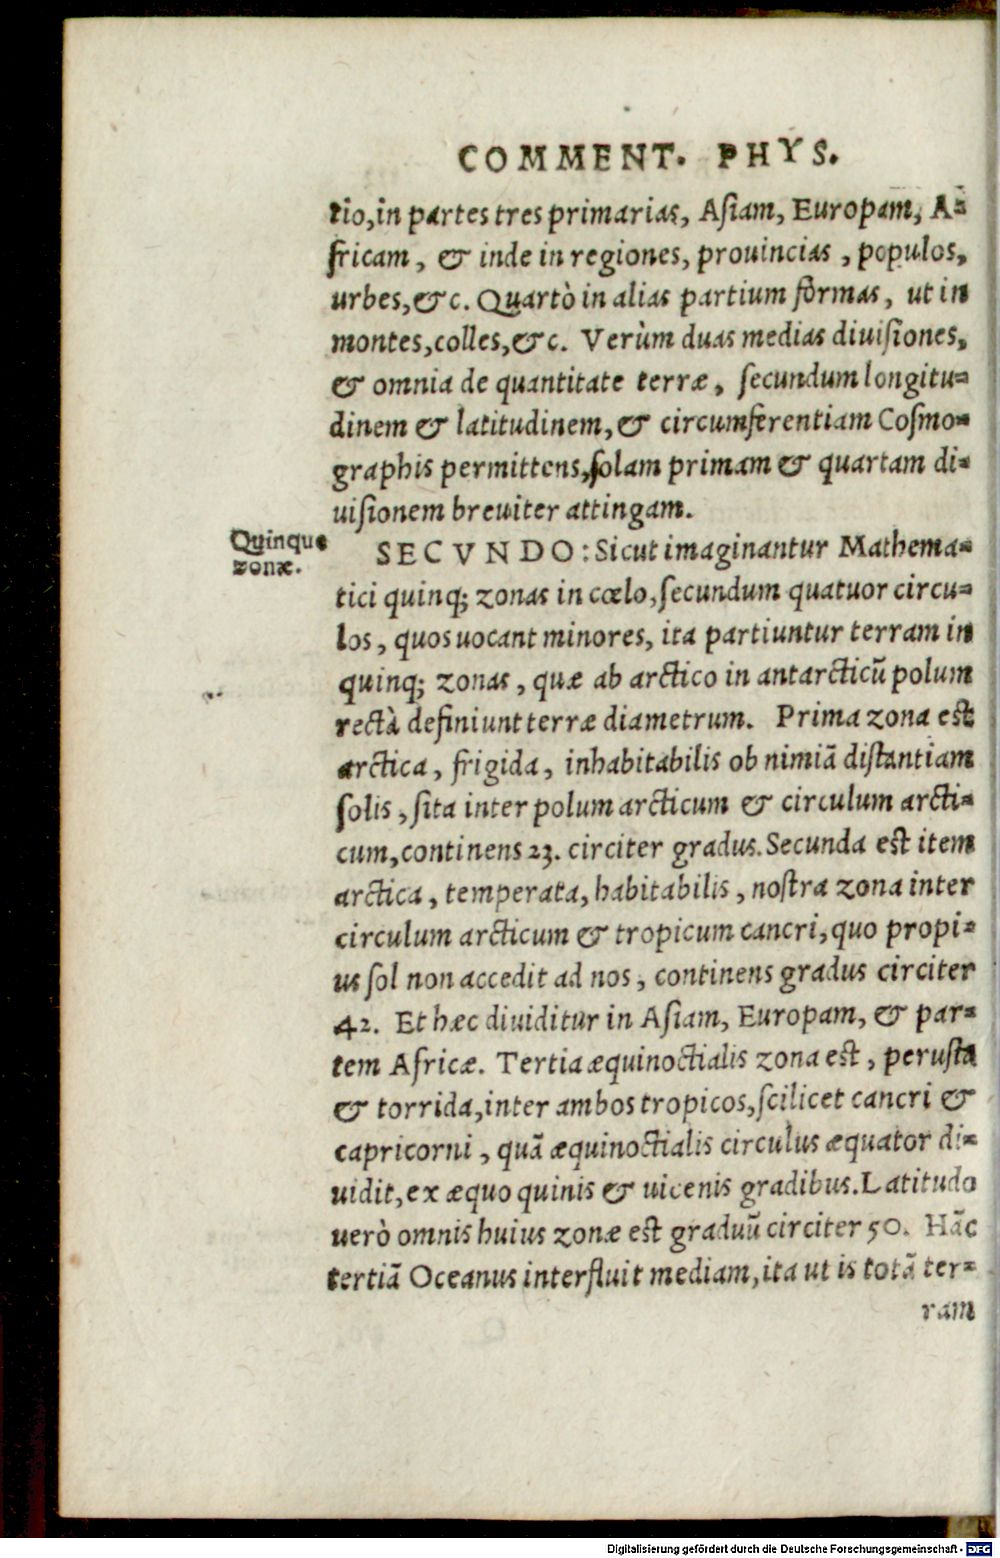 COMMENT. PHYS.
tio, in partes tres primarias, Asiam, Europam, A-
fricam, & inde in regiones, prouincias, populos,
urbes, &c. Quartò in alias partium formas, ut in
montes, colles, &c. Verùm duas medias diuisiones,
& omnia de quantitate terræ, secundum longitu-
dinem & latitudinem, & circumferentiam Cosmo-
graphis permittens, solam primam & quartam di-
uisionem breuiter attingam.
Quinque
zonæ.
SECVNDO: Sicut imaginantur Mathema-
tici quinq; zonas in cœlo, secundum quatuor circu-
los, quos uocant minores, ita partiuntur terram in
quinq; zonas, quæ ab arctico in antarcticũ polum
rectà definiunt terræ diametrum. Prima zona est
arctica, frigida, inhabitabilis ob nimiã distantiam
solis, sita inter polum arcticum & circulum arcti-
cum, continens 23. circiter gradus. Secunda est item
arctica, temperata, habitabilis, nostra zona inter
circulum arcticum & tropicum cancri, quo propi-
us sol non accedit ad nos, continens gradus circiter
42. Et hæc diuiditur in Asiam, Europam, & par-
tem Africæ. Tertia æquinoctialis zona est, perusta
& torrida, inter ambos tropicos, scilicet cancri &
capricorni, quã æquinoctialis circulus æquator di-
uidit, ex æquo quinis & uicenis gradibus. Latitudo
uerò omnis huius zonæ est graduũ circiter 50. Hãc
tertiã Oceanus interfluit mediam, ita ut is totã ter-
ram
Digitalisierung gefördert durch die Deutsche Forschungsgemeinschaft - DFG